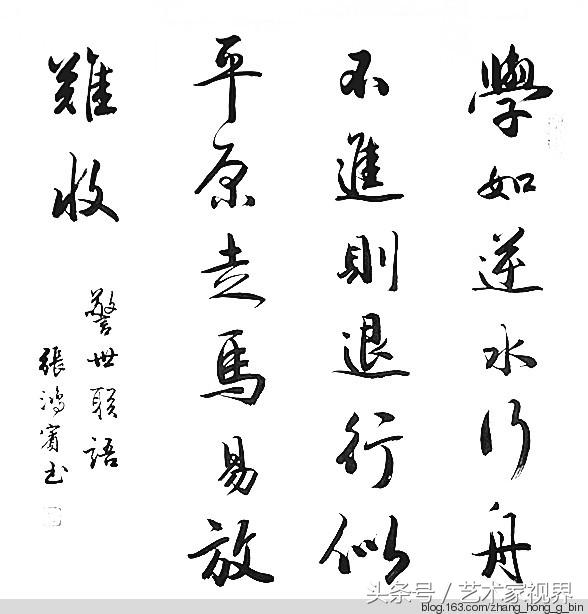 學如逆水行舟
不進則退行似
平原走馬易放
難收
警世联語
張鴻賓书
头条号／艺术家视界